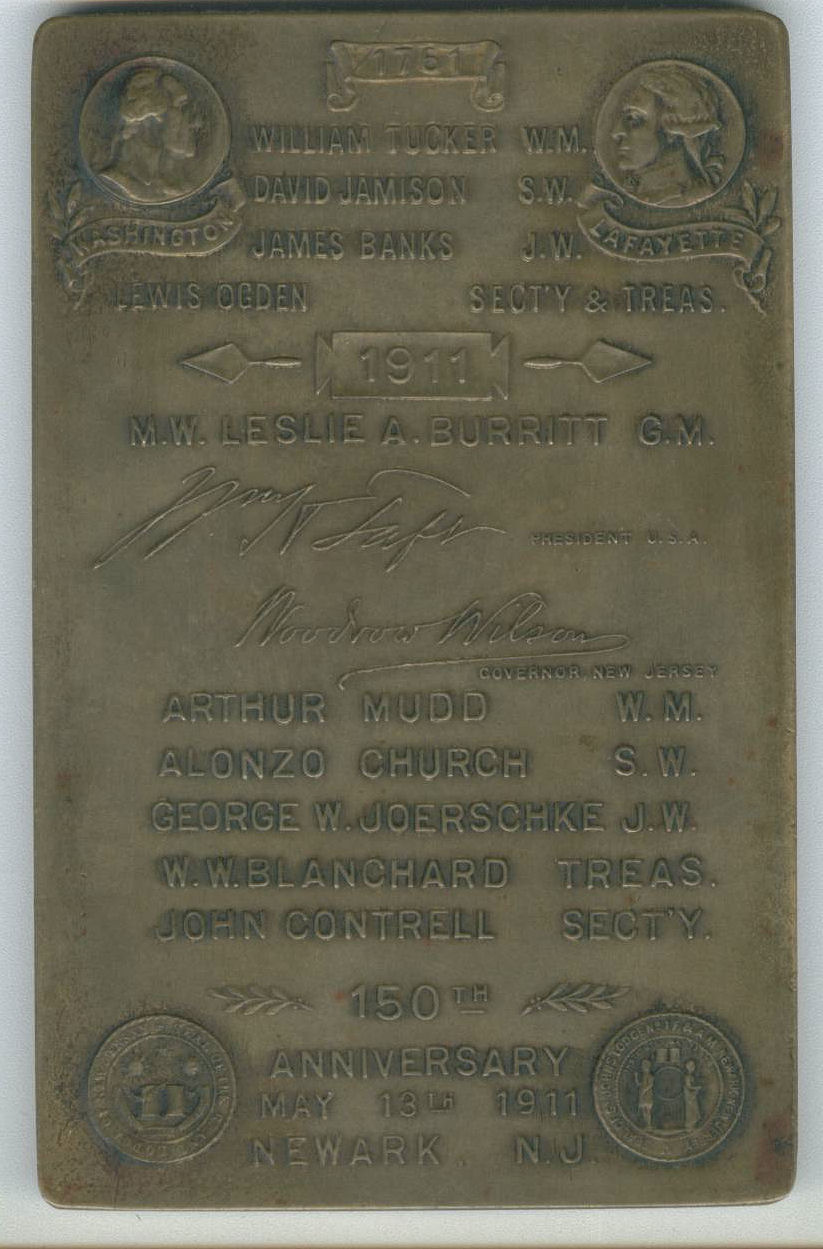 1761
WILLIAM TUCKER W.M.
DAVID JAMISON S.W.
WASHINGTON
JAMES BANKS J.W.
LAFAYETTE
LEWIS OGDEN SECT'Y & TREAS.
1911
M.W. LESLIE A. BURRITT G.M.
Wm H Taft PRESIDENT U.S.A.
Woodrow Wilson
GOVERNOR, NEW JERSEY
ARTHUR MUDD W.M.
ALONZO CHURCH S.W.
GEORGE W. JOERSCHKE J.W.
W.W. BLANCHARD TREAS.
JOHN CONTRELL SECT'Y.
150TH
ANNIVERSARY
MAY 13TH 1911
NEWARK N.J.